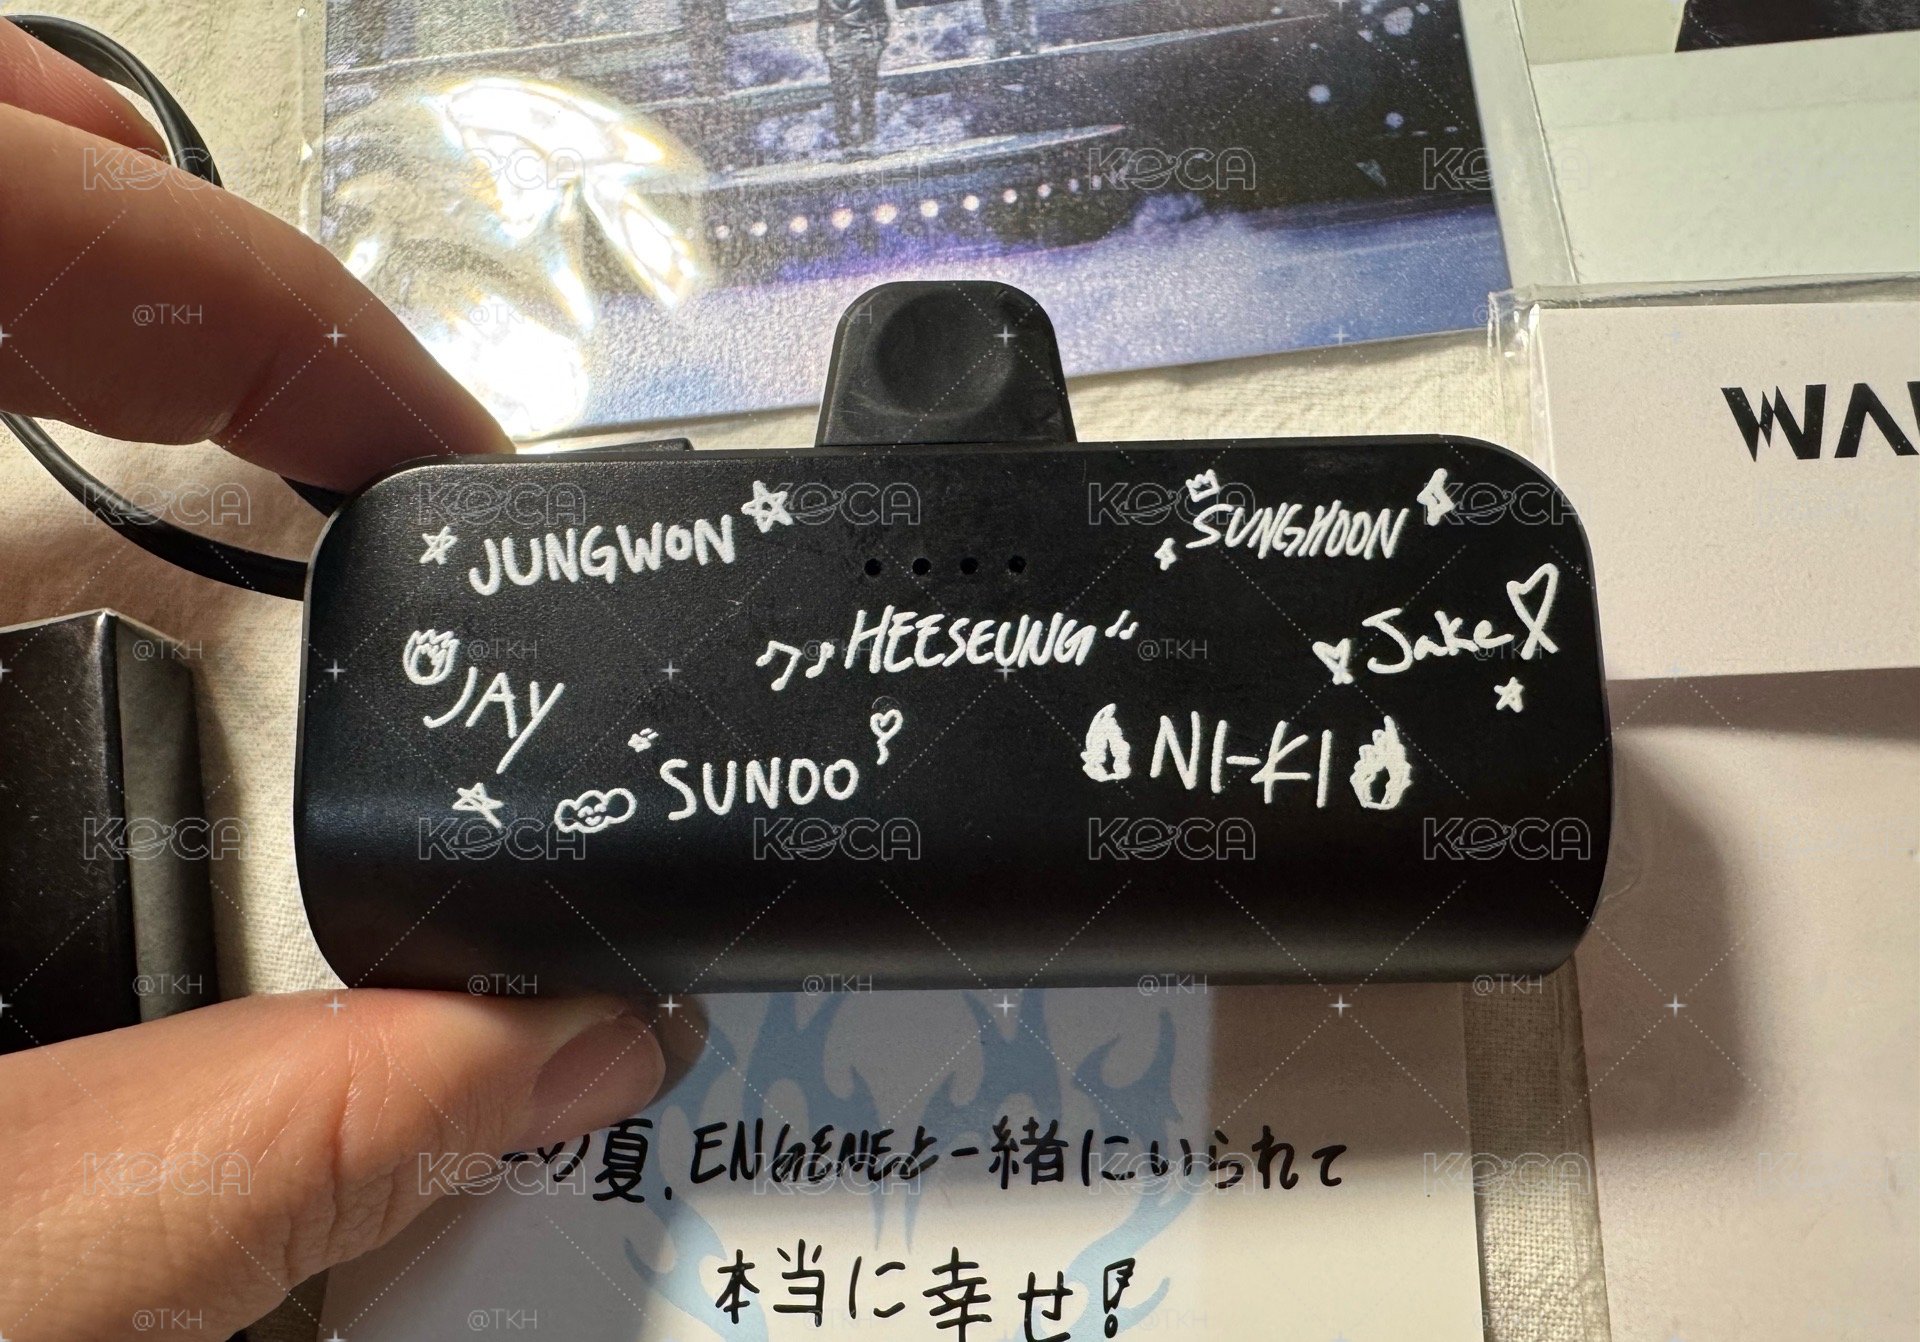 WA
JUNGWON
SUNGHOON
HEESEUNG
Jake
JAY
SUNOO
NI-KI
夏、ENGENEと一緒にいられて
本当に幸せ!
KOCA
@TKH